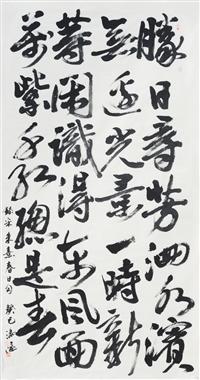 勝日尋芳泗水濱
無邊光景一時新
等閒識得東風面
萬紫千紅總是春
錄宋朱熹春日句 癸巳